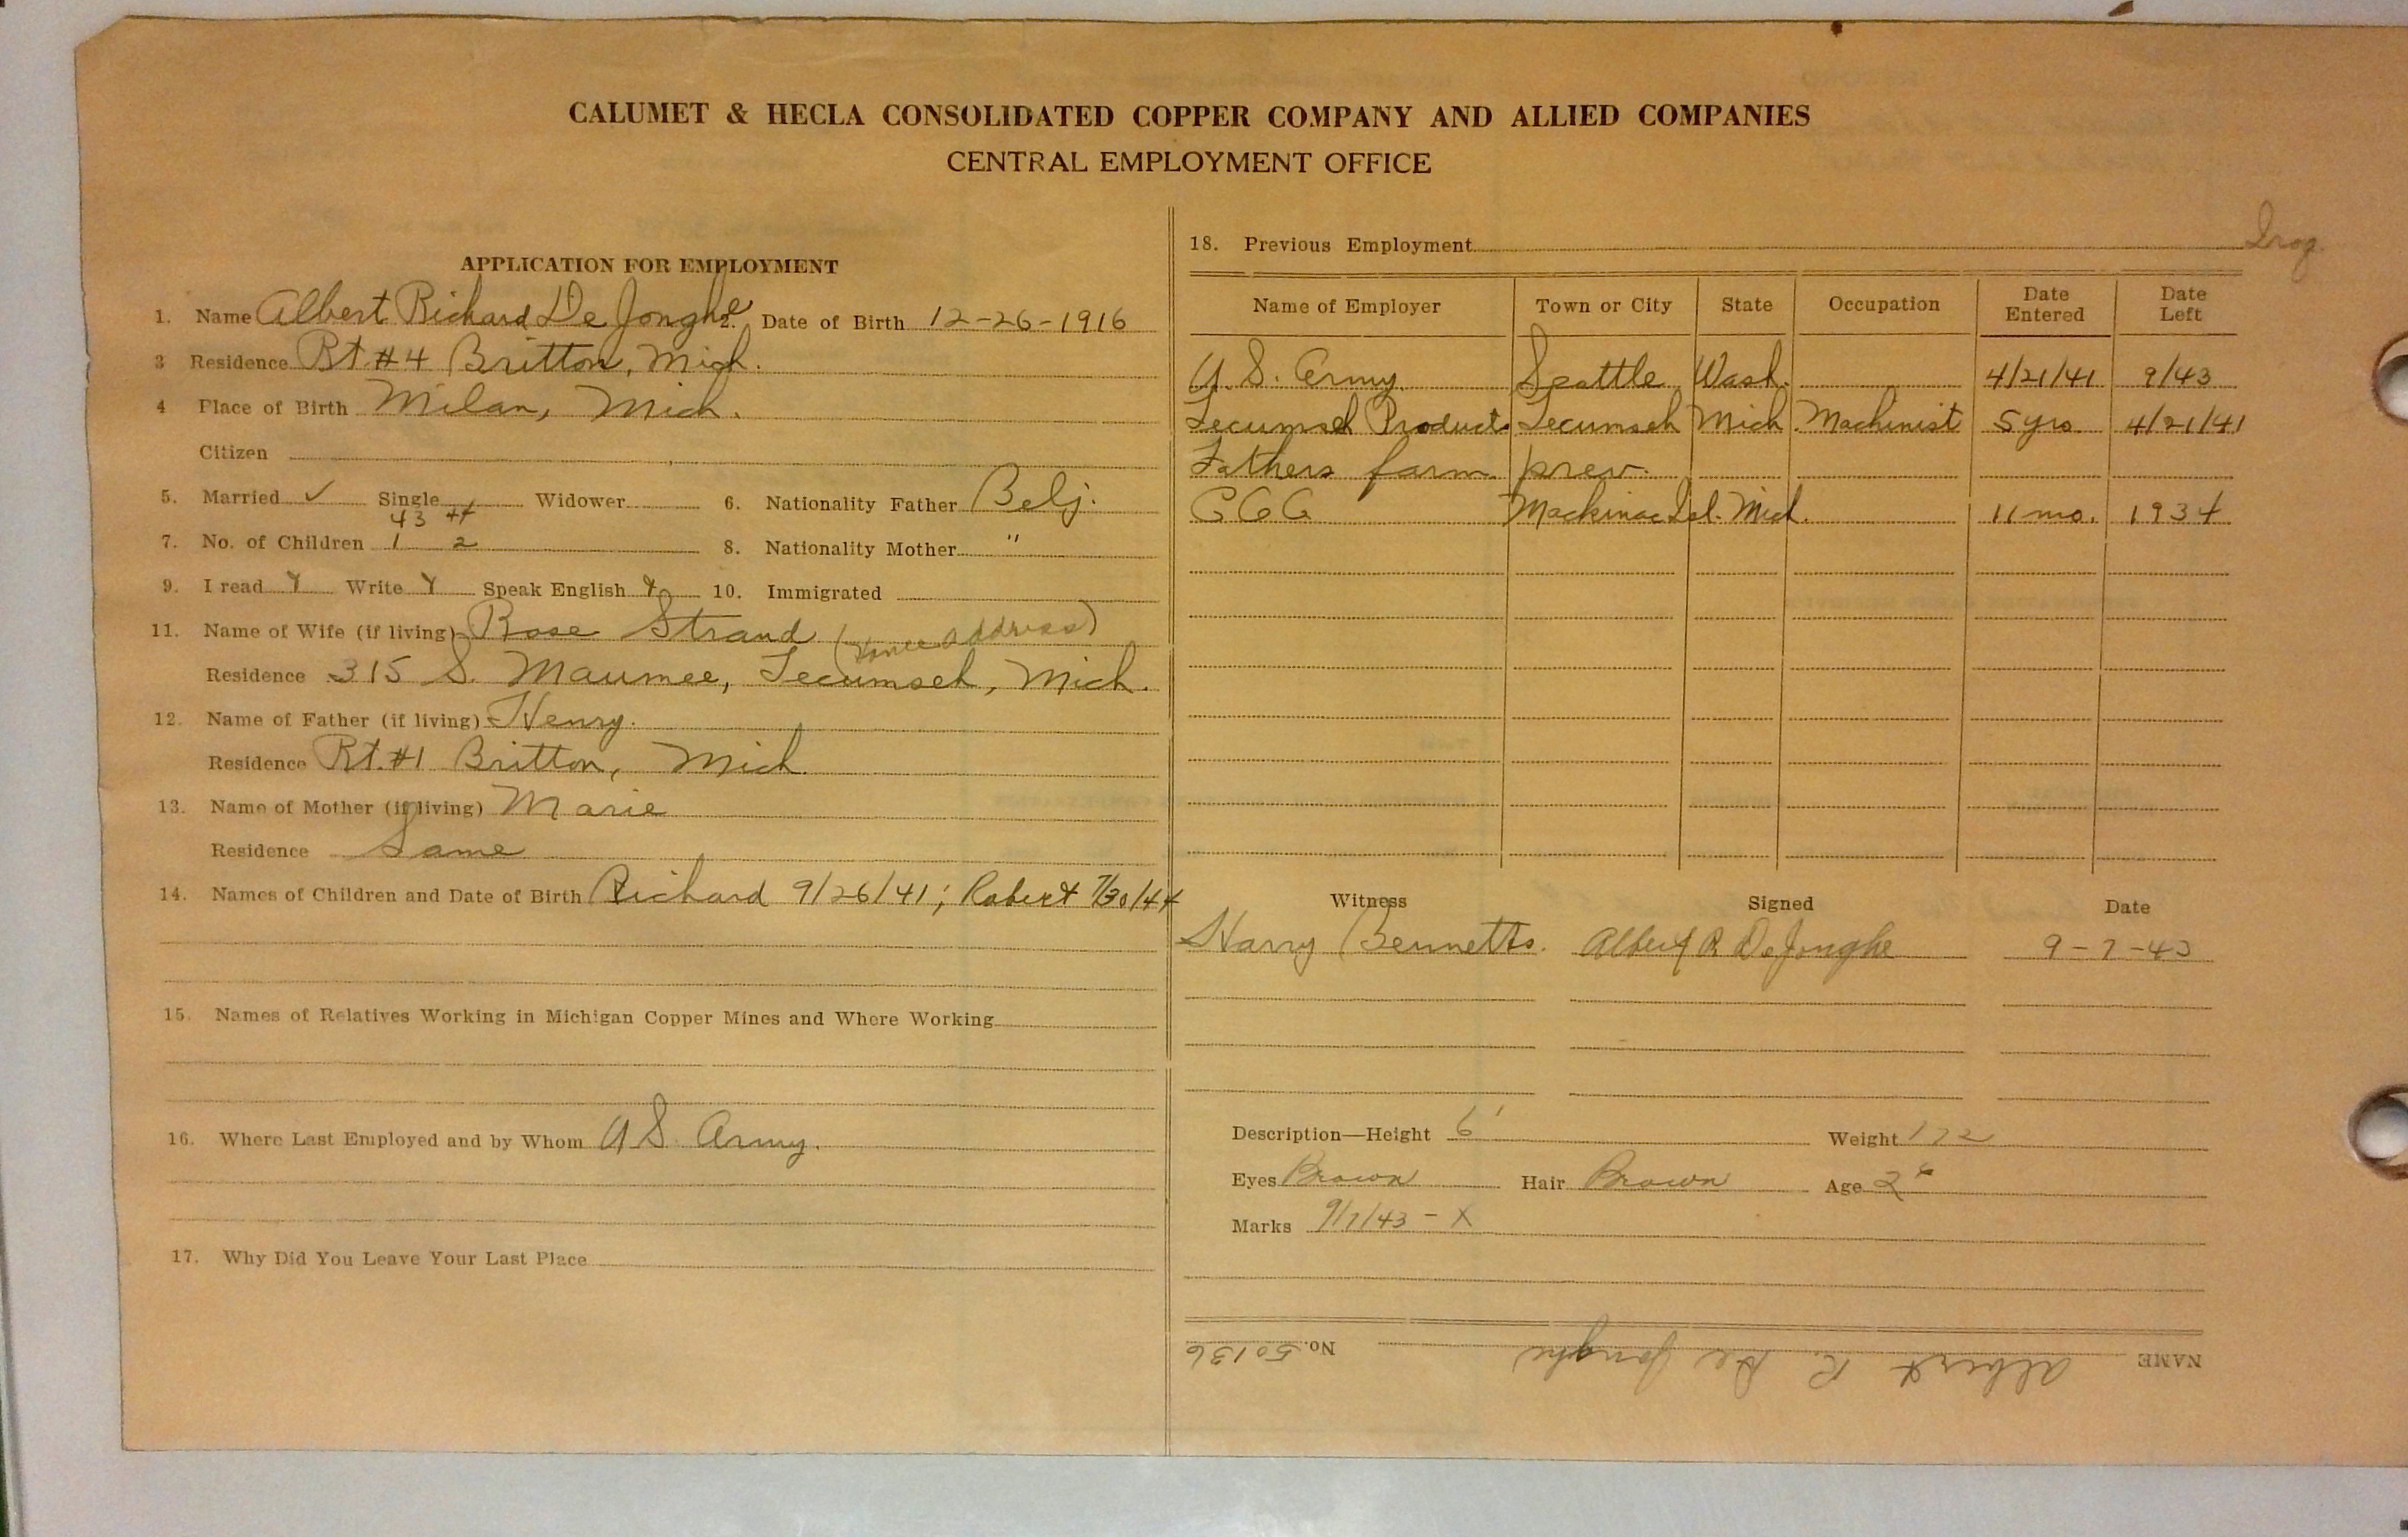 CALUMET & HECLA CONSOLIDATED COPPER COMPANY AND ALLIED COMPANIES
CENTRAL EMPLOYMENT OFFICE
APPLICATION FOR EMPLOYMENT
1. Name Albert Richard De Jonghe 2. Date of Birth 12-26-1916
3 Residence Rt. #4 Britton, Mich.
4 Place of Birth Milan, Mich.
Citizen
5. Married ✓ Single Widower 6. Nationality Father Belj.
43 44
7. No. of Children 1 2 8. Nationality Mother "
9. I read Y Write Y Speak English Y 10. Immigrated
11. Name of Wife (if living) Rose Strand ( address)
Residence 315 S. Maumee, Tecumseh, Mich.
12. Name of Father (if living) Henry.
Residence Rt. #1 Britton, Mich.
13. Name of Mother (if living) Marie
Residence Same
14. Names of Children and Date of Birth Richard 9/26/41; Robert 7/30/44
15. Names of Relatives Working in Michigan Copper Mines and Where Working
16. Where Last Employed and by Whom U S. Army.
17. Why Did You Leave Your Last Place
18. Previous Employment
Name of Employer Town or City State Occupation Date Entered Date Left
U. S. Army. Seattle Wash. 4/21/41 9/43
Tecumseh Products Tecumseh Mich. Machinist 5 yrs. 4/21/41
Fathers farm prev.
C C C Mackinac Isl. Mich. 11 mo. 1934
Witness Signed Date
Harry Bennetts. Albert R DeJonghe 9-7-43
Description—Height 6' Weight 172
Eyes Brown Hair Brown Age 26
Marks 9/7/43 - X
NAME Albert R. De Jonghe No. 50136